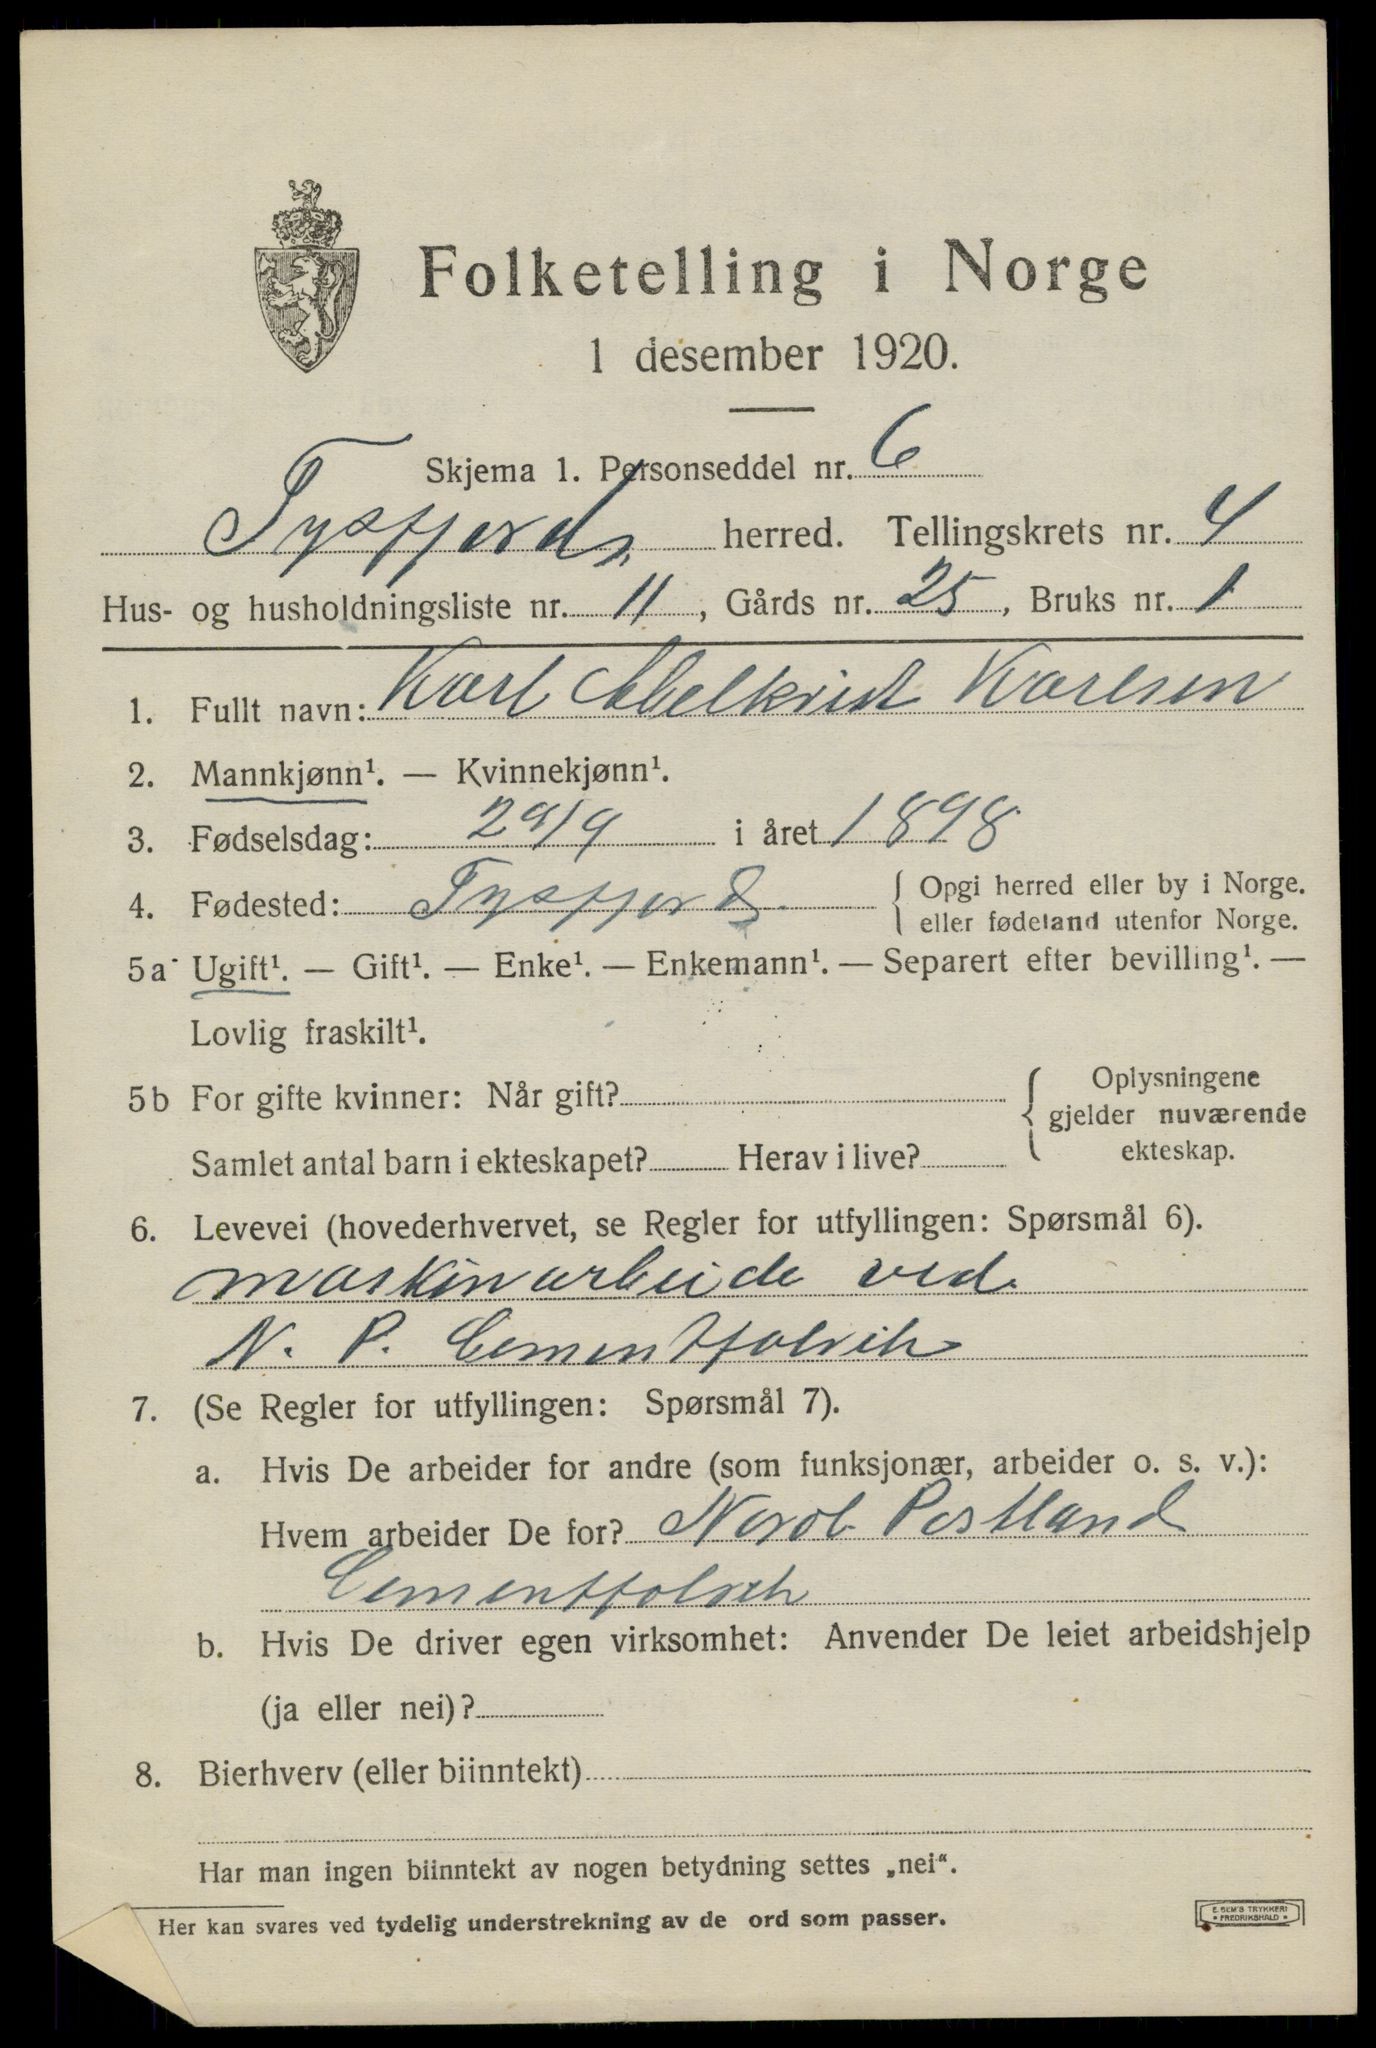 Folketelling i Norge
1 desember 1920.
Skjema 1. Personseddel nr. 6
Tysfjords herred. Tellingskrets nr. 4
Hus- og husholdningsliste nr. 11, Gårds nr. 25, Bruks nr. 1
1. Fullt navn: Karl Melkrist Karlsen
2. Mannkjønn¹. — Kvinnekjønn¹.
3. Fødselsdag: 29/9 i året 1898
4. Fødested: Tysfjord. { Opgi herred eller by i Norge.
eller fødeland utenfor Norge.
5a Ugift¹. — Gift¹. — Enke¹. — Enkemann¹. — Separert efter bevilling¹. —
Lovlig fraskilt¹.
5b For gifte kvinner: Når gift?
Samlet antal barn i ekteskapet? Herav i live?
{ Oplysningene
gjelder nuværende
ekteskap.
6. Levevei (hovederhvervet, se Regler for utfyllingen: Spørsmål 6).
maskinarbeide ved
N. P. Cementfabrik
7. (Se Regler for utfyllingen: Spørsmål 7).
a. Hvis De arbeider for andre (som funksjonær, arbeider o. s. v.):
Hvem arbeider De for? Nordl. Portland
Cementfabrik
b. Hvis De driver egen virksomhet: Anvender De leiet arbeidshjelp
(ja eller nei)?
8. Bierhverv (eller biinntekt)
Har man ingen biinntekt av nogen betydning settes „nei“.
Her kan svares ved tydelig understrekning av de ord som passer.
E. SEM'S TRYKKERI
• FREDRIKSHALD •